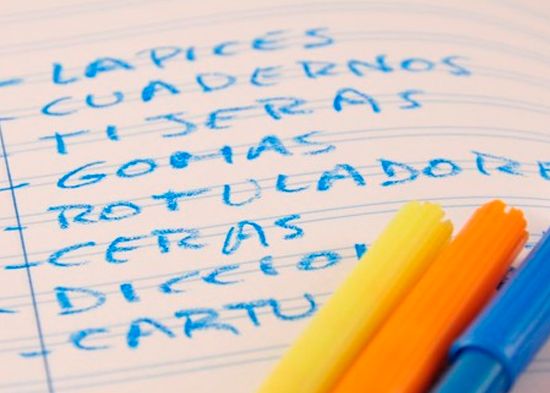 - LAPICES
- CUADERNOS
- TIJERAS
- GOMAS
- ROTULADORE
- CERAS
- DICCIO
- CARTU